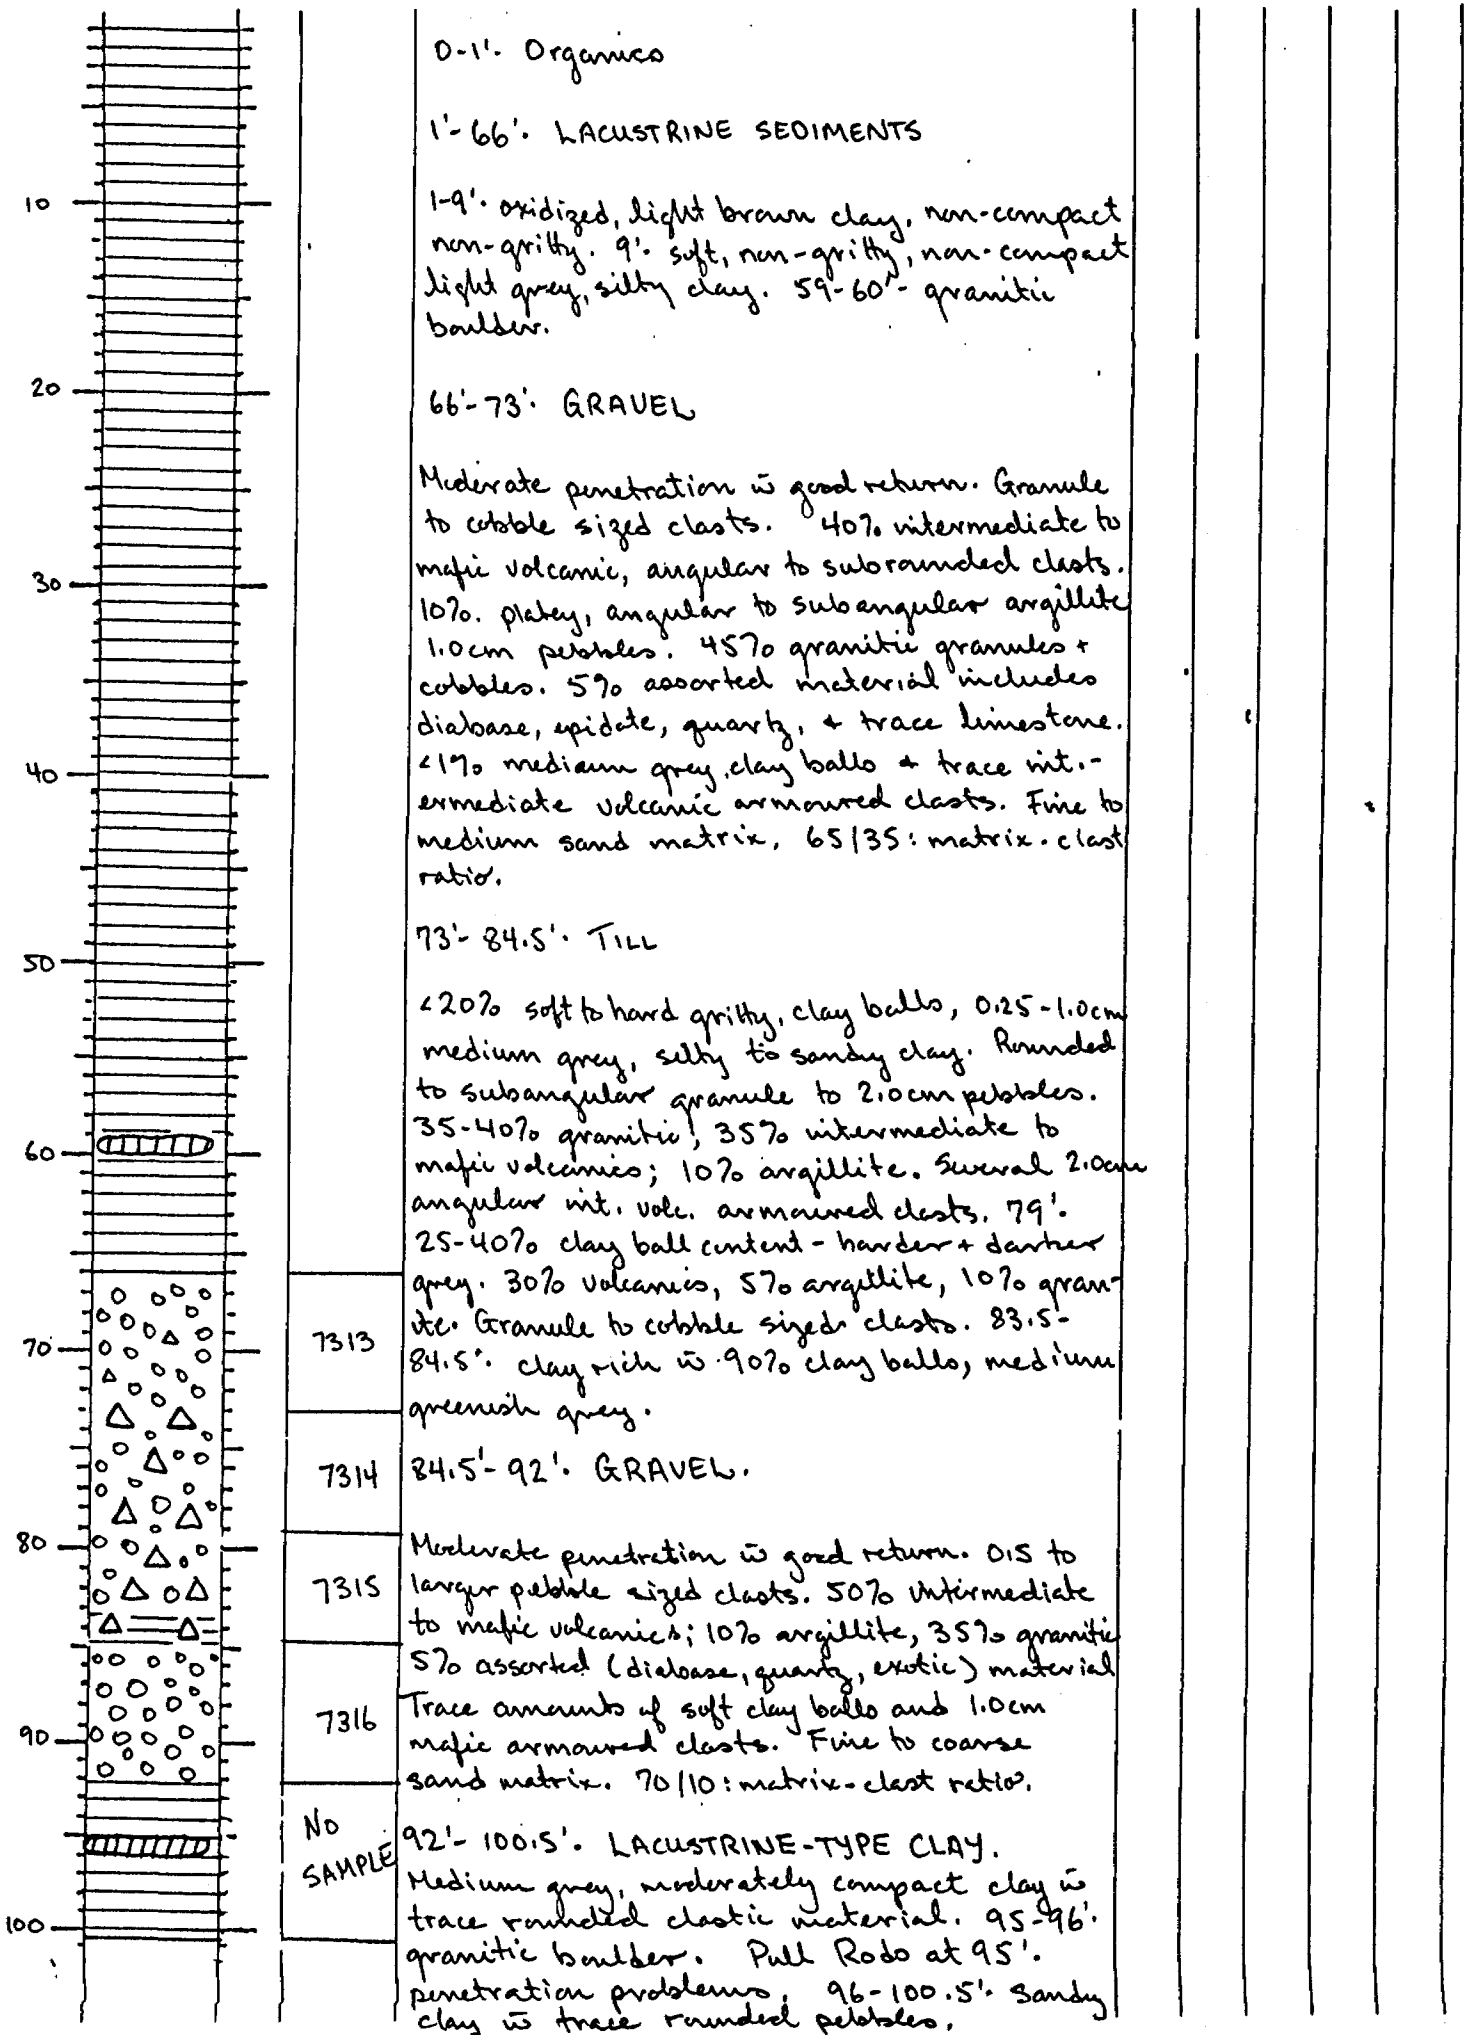 0-1'. Organics
1'-66'. LACUSTRINE SEDIMENTS
10
1-9'. oxidized, light brown clay, non-compact
non-gritty. 9'. soft, non-gritty, non-compact
light grey, silty clay. 59-60'- granitic
boulder.
20
66'-73'. GRAVEL
Moderate penetration w̄ good return. Granule
to cobble sized clasts. 40% intermediate to
mafic volcanic, angular to subrounded clasts.
30
10%. platey, angular to subangular argillite
1.0cm pebbles. 45% granitic granules +
cobbles. 5% assorted material includes
diabase, epidote, quartz, + trace limestone.
40
<1% medium grey, clay balls + trace int.-
ermediate volcanic armoured clasts. Fine to
medium sand matrix, 65/35: matrix-clast
ratio.
73'-84.5'. TILL
50
<20% soft to hard gritty, clay balls, 0.25-1.0cm
medium grey, silty to sandy clay. Rounded
to subangular granule to 2.0cm pebbles.
35-40% granitic; 35% intermediate to
60
mafic volcanics; 10% argillite. Several 2.0cm
angular int. volc. armoured clasts. 79'.
25-40% clay ball content - harder + darker
grey. 30% volcanics, 5% argillite, 10% gran-
ite. Granule to cobble sized clasts. 83.5-
70
7313
84.5'. clay rich w̄ 90% clay balls, medium
greenish grey.
7314
84.5'-92'. GRAVEL.
80
Moderate penetration w̄ good return. 0.5 to
7315
larger pebble sized clasts. 50% intermediate
to mafic volcanics; 10% argillite, 35% granitic
5% assorted (diabase, quartz, exotic) material
7316
Trace amounts of soft clay balls and 1.0cm
90
mafic armoured clasts. Fine to coarse
sand matrix. 70/10: matrix-clast ratio.
NO
SAMPLE
92'-100.5'. LACUSTRINE-TYPE CLAY.
Medium grey, moderately compact clay w̄
100
trace rounded clastic material. 95-96'.
granitic boulder. Pull Rods at 95'.
penetration problems. 96-100.5'. Sandy
clay w̄ trace rounded pebbles.